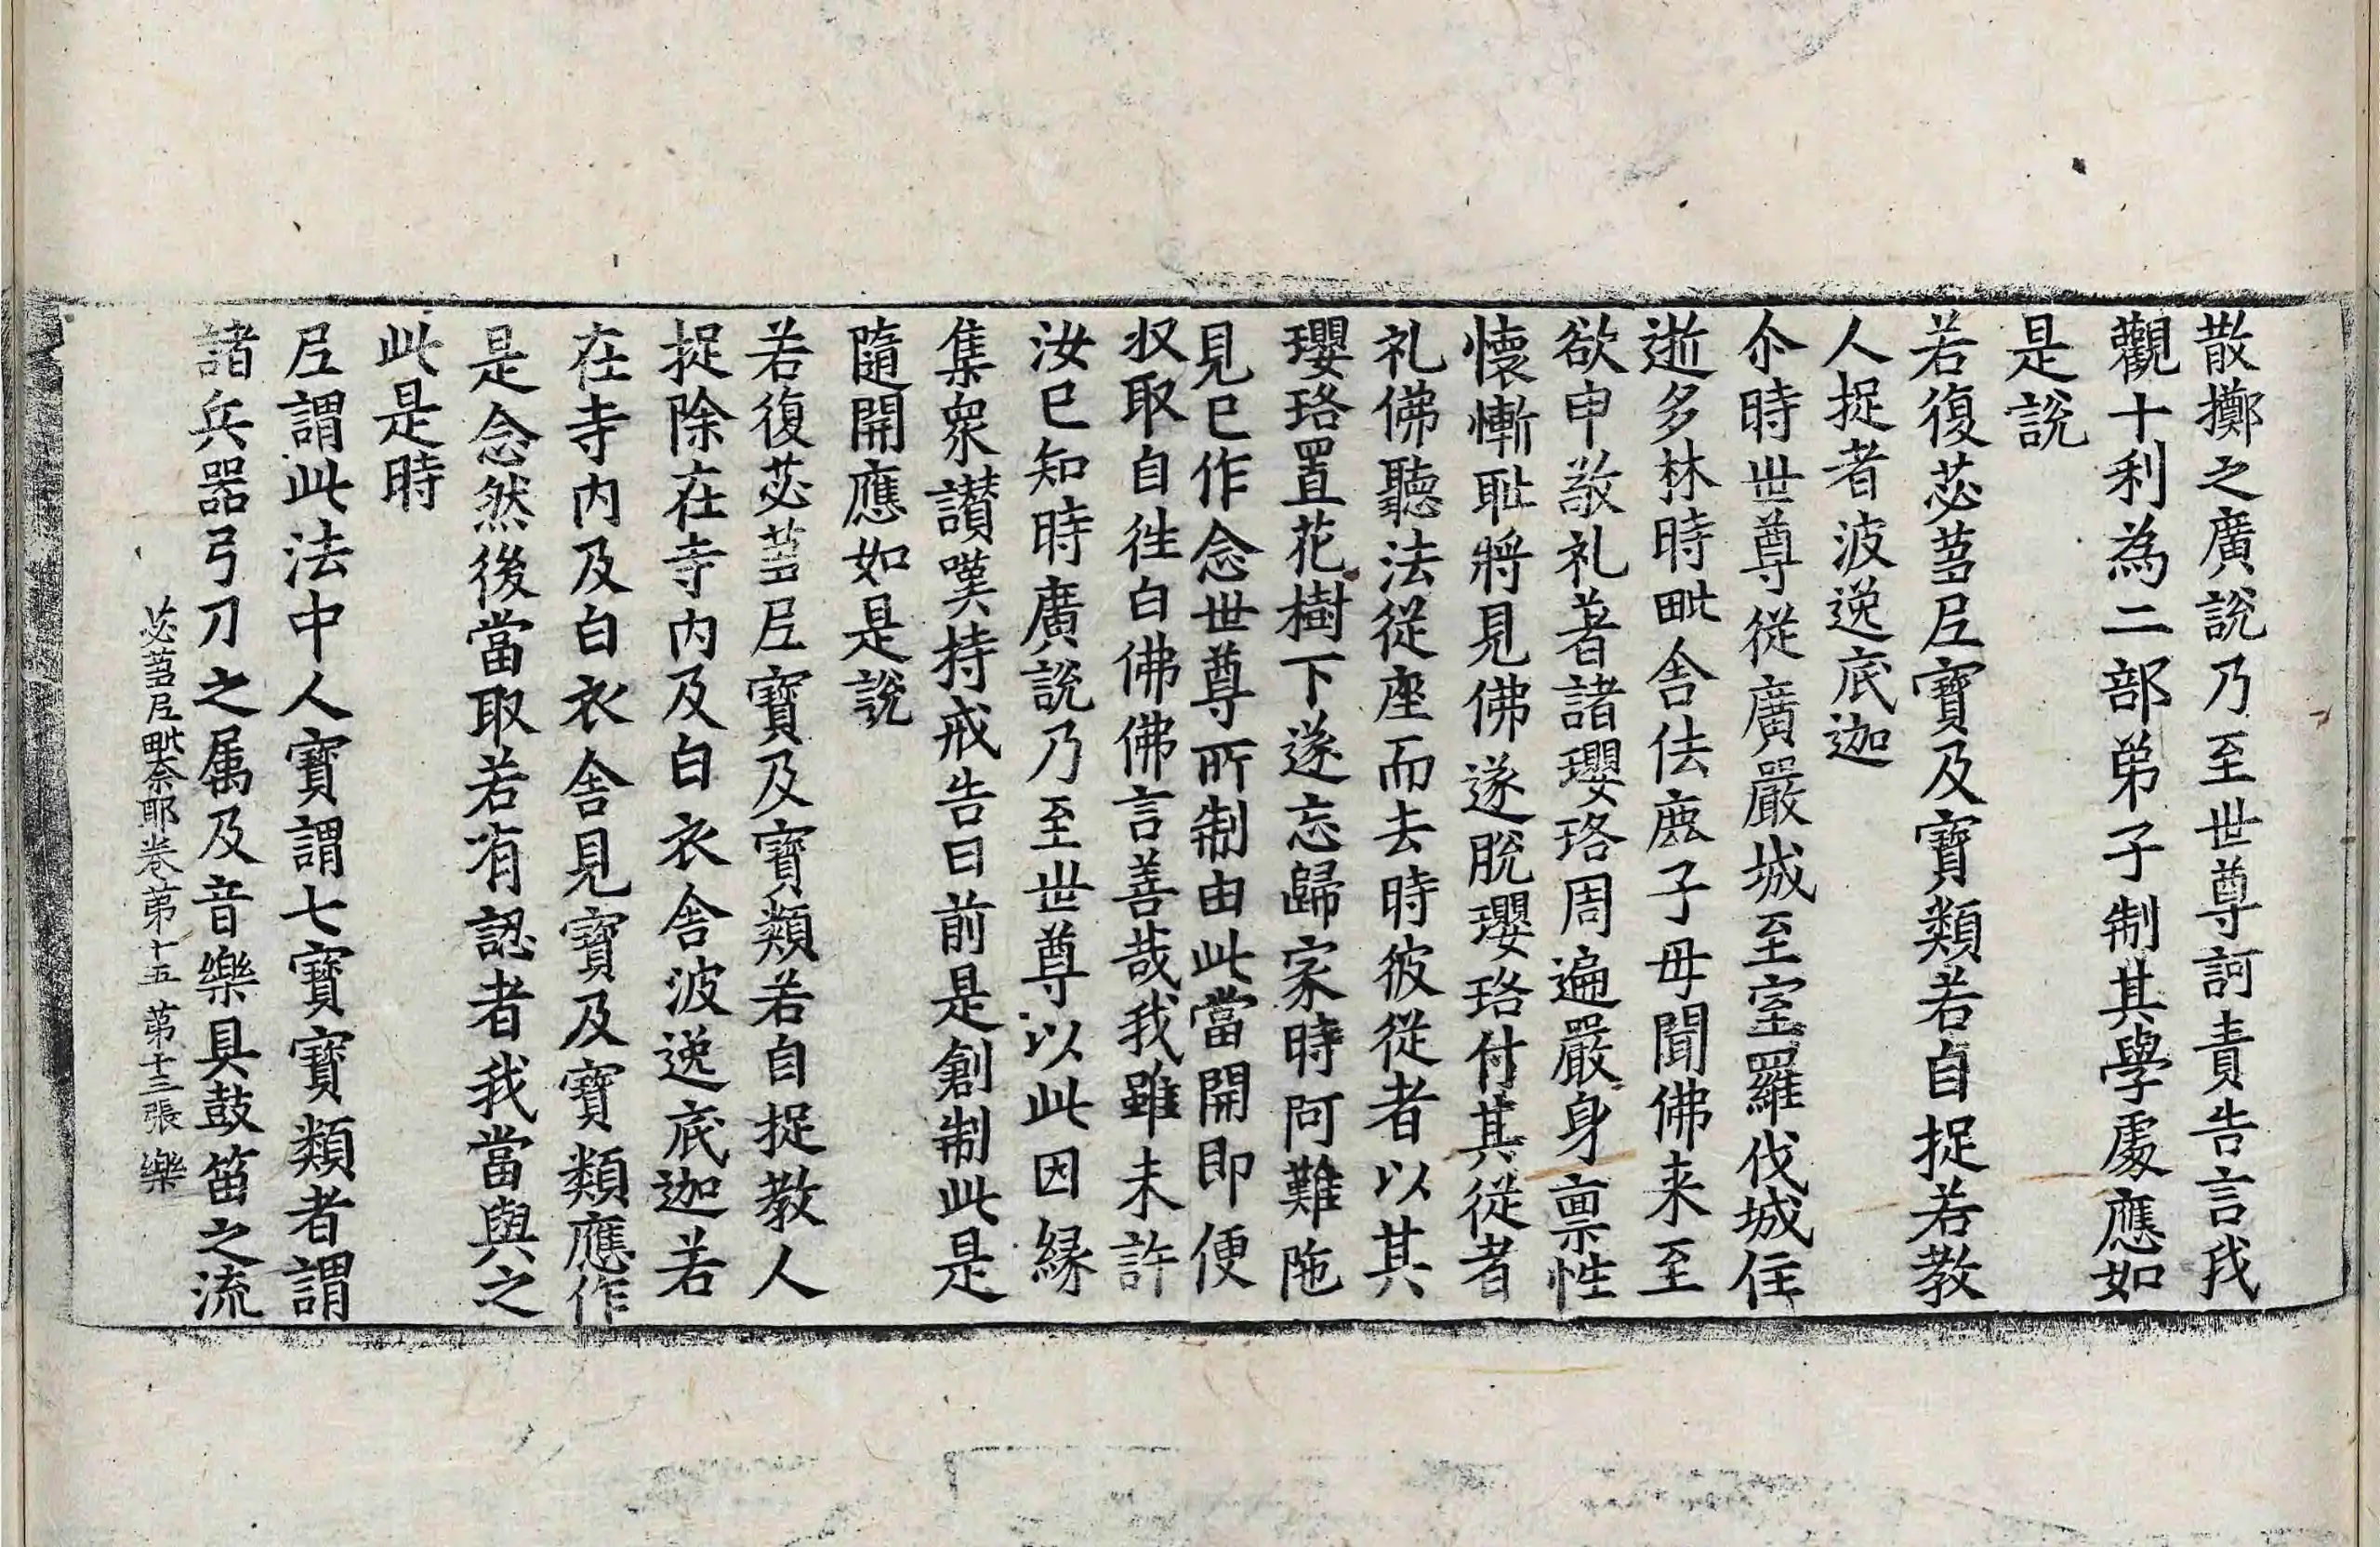 散擲之廣說乃至世尊訶責告言我
觀十利為二部弟子制其學處應如
是說
若復苾蒭尼寶及寶類若自捉若教
人捉者波逸底迦
尒時世尊從廣嚴城至室羅伐城住
逝多林時毗舍佉鹿子母聞佛来至
欲申敬礼著諸瓔珞周遍嚴身禀性
懷慚耻將見佛遂脫瓔珞付其從者
礼佛聽法從座而去時彼從者以其
瓔珞置花樹下遂忘歸家時阿難陁
見已作念世尊所制由此當開即便
収取自往白佛佛言善哉我雖未許
汝已知時廣說乃至世尊以此因緣
集衆讃嘆持戒告曰前是創制此是
隨開應如是說
若復苾蒭尼寶及寶類若自捉教人
捉除在寺內及白衣舍波逸底迦若
在寺內及白衣舍見寶及寶類應作
是念然後當取若有認者我當與之
此是時
尼謂此法中人寶謂七寶寶類者謂
諸兵器弓刀之属及音樂具鼓笛之流
苾蒭尼毗奈耶卷第十五 第十三張 樂